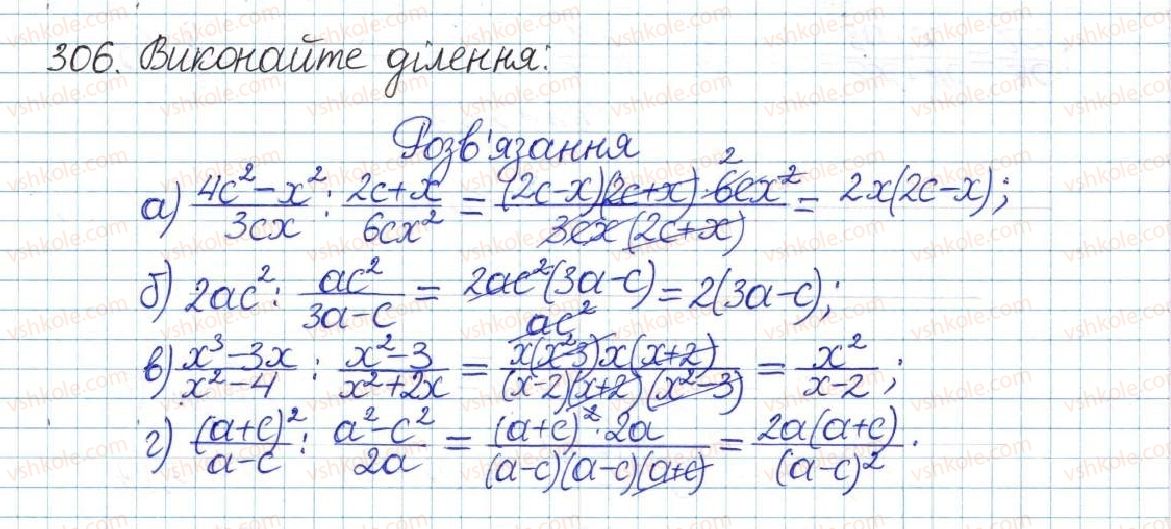 306. Виконайте ділення:
Розв'язання
а) (4c² − x²)/(3cx) : (2c + x)/(6cx²) = ((2c − x)(2c + x) · 6cx²)/(3cx(2c + x)) = 2x(2c − x);
б) 2ac² : (ac²)/(3a − c) = (2ac²(3a − c))/(ac²) = 2(3a − c);
в) (x³ − 3x)/(x² − 4) : (x² − 3)/(x² + 2x) = (x(x² − 3)x(x + 2))/((x − 2)(x + 2)(x² − 3)) = x²/(x − 2);
г) (a + c)²/(a − c) : (a² − c²)/(2a) = ((a + c)² · 2a)/((a − c)(a − c)(a + c)) = (2a(a + c))/((a − c)²).
vshkole.com